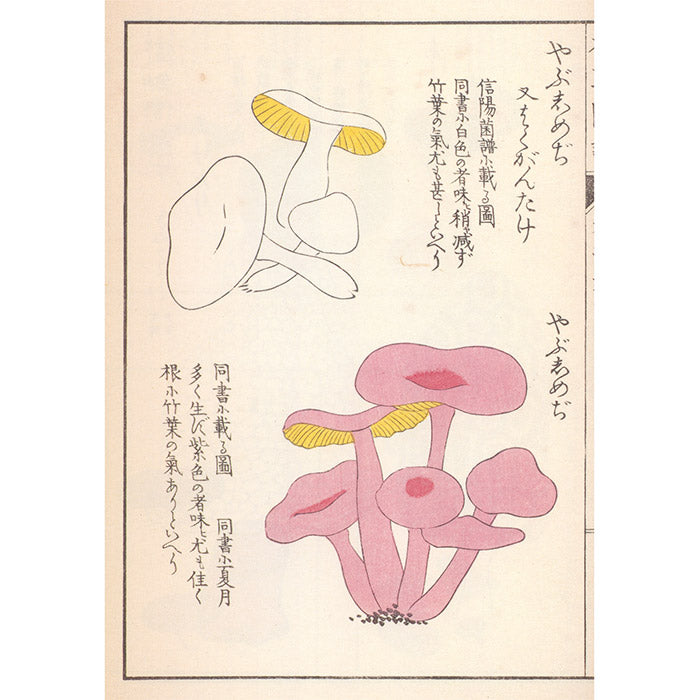 やぶしめぢ
信陽菌譜に載る圖
同書に白色の者味ヒ稍減ず
竹葉の氣尤も甚しといへり
やぶしめぢ
同書に載る圖 同書に夏月
多く生ず紫色の者味ヒ尤も佳く
根に竹葉の氣ありといへり